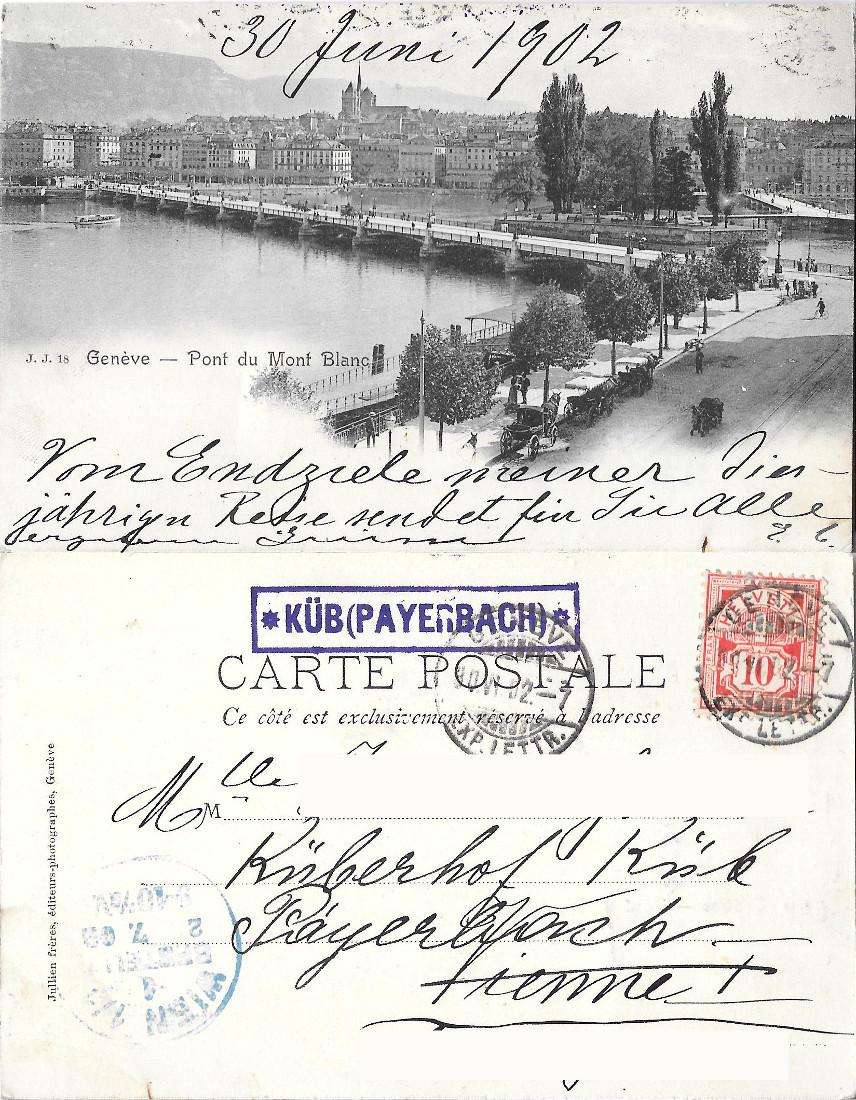 30 Juni 1902
J. J. 18 Genève — Pont du Mont Blanc
Vom Endziele meiner dies-
jährigen Reise sendet für Sie Alle
KÜB (PAYERBACH)
CARTE POSTALE
Ce côté est exclusivement réservé à l'adresse
HELVETIA
10
EXP. LETTR.
EXP. LETTR.
Mlle
M
Küberhof Küb
Payerbach
Vienne
Jullien frères, éditeurs-photographes, Genève
WIEN
BESTELLT